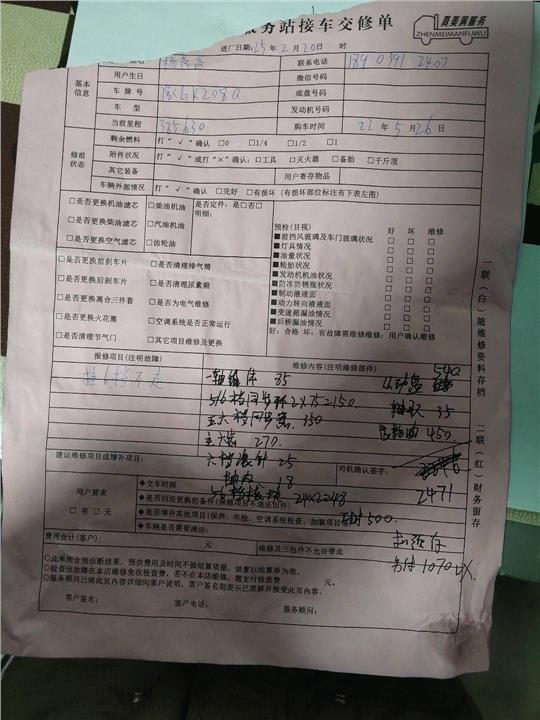 服务站接车交修单
真美满服务
ZHENMEIMANFUWU
进厂日期:25年2月20日 时
联系电话
基本信息
用户生日 微信号码
车牌号 底盘号码
车型 发动机号码
当前里程 325630 购车时间 22年5月26日
修前状态
剩余燃料 打“√”确认 □0 □1/4 □1/2 □1
附件状况 打“√”或打“×”确认:□工具 □灭火器 □备胎 □千斤顶
其它装备 用户寄存物品
车辆外部情况 打“√”确认 □完好 □有损坏 (有损坏部位标注有下表左图)
□是否更换机油滤芯 □柴油机油 是否定件:是□否□
□是否更换柴油滤芯 □汽油机油 明细:
□是否更换空气滤芯 □齿轮油
□是否更换前刹车片 □是否清理排气筒
□是否更换后刹车片 □是否清理尿素箱
□是否更换离合三件套 □是否为电气维修
□是否更换火花塞 □空调系统是否正常运行
□是否清理节气门 □其它项目维修及更换
预检(目视) 好 坏 维修
■前挡风玻璃及车门玻璃状况 □ □ □
■灯具情况 □ □ □
■油量状况 □ □ □
■轮胎状况 □ □ □
■发动机机油状况 □ □ □
■防冻防锈瓶状况 □ □ □
■制动液液面 □ □ □
■动力转向液液面 □ □ □
■变速箱漏油情况 □ □ □
■后桥漏油情况 □ □ □
好:合格 坏:有故障需维修维修:用户确认维修
一联(白)随维修资料存档 二联(红)财务留存
报修项目(注明故障) 维修内容(注明维修部件) 540
挂6档不走 85
5/6档同步环2X75=150 轴承 35
五六档同步器 350 齿轮油 450
270
建议维修项目或增补项目: 六档滚针 25 司机确认签字:
18 2471
用户要求 □有 □无
◆交车时间
◆是否归还更换的备件(保修项目不退还旧件) 24X2=48
◆是否增补其他项目(保养、年检、空调系统检查、加装项目 500
◆车辆是否需要清洁:
费用合计(客户): 元 维修及三包件不允许带走
1070
○此单所含预诊断结果,预估费用及时间不做结算依据,结算以结算单为准。
○检查出故障在本店维修免收检查费,若不在本店维修,需支付检查费 元。
○服务顾问已将此页内容详细向客户说明,客户签名则表示已理解并接受此页内容。
客户签名: 客户电话: 服务顾问: